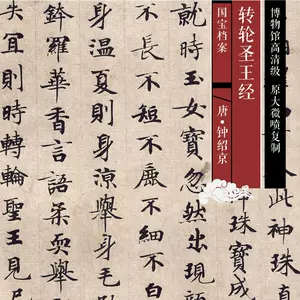 博物馆高清级 原大微喷复制
转轮圣王经
唐·钟绍京
国宝档案
神珠寶成
就時玉女寶忽然出現
不長不短不麁不細不
身溫夏則身涼舉身毛
鉢羅華香言語柔耎舉
失宜則時轉輪聖王見